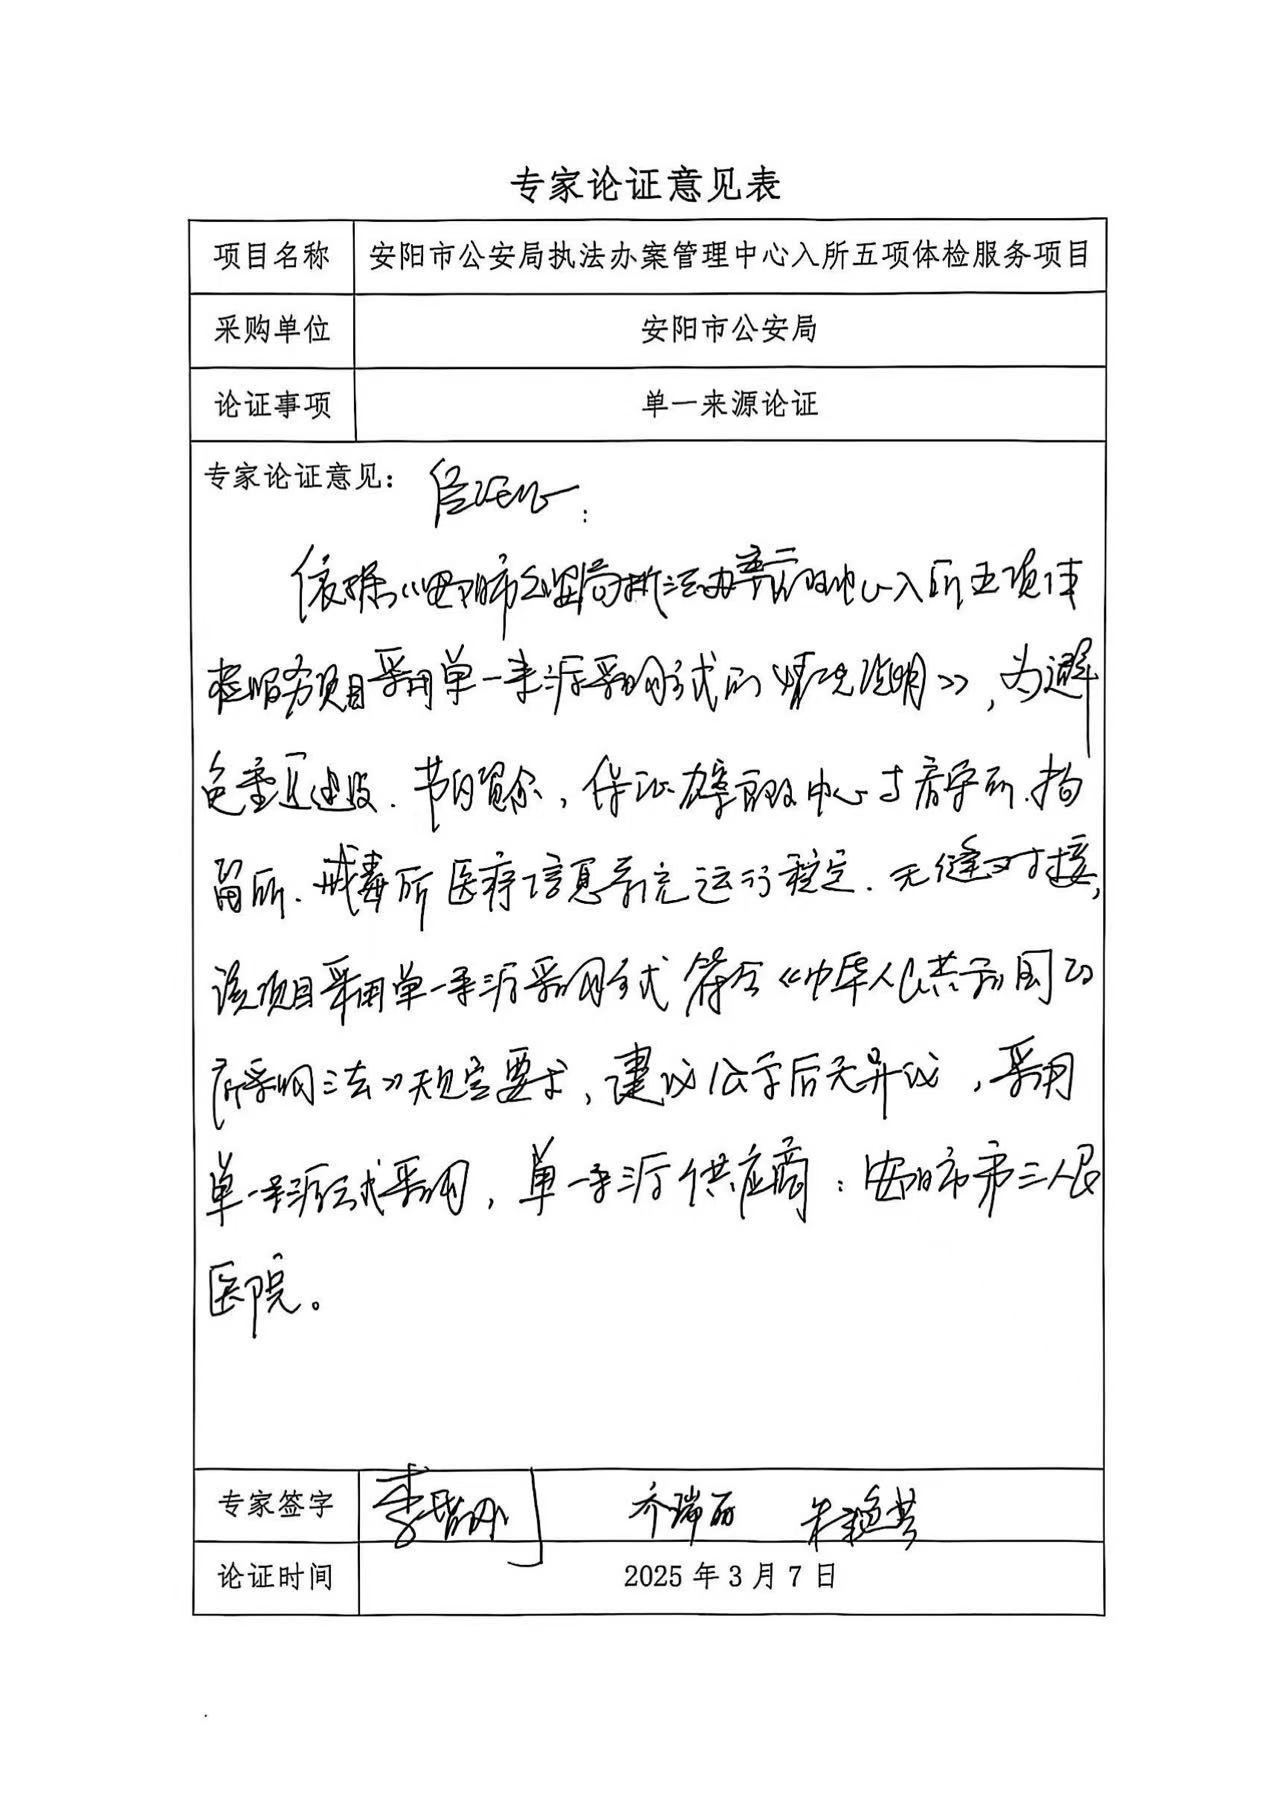 专家论证意见表
项目名称 安阳市公安局执法办案管理中心入所五项体检服务项目
采购单位 安阳市公安局
论证事项 单一来源论证
专家论证意见： 经论证：
依据《安阳市公安局执法办案管理中心入所五项体
检服务项目采用单一来源采购方式的情况说明》，为避
免重复建设、节约资金，保证办案管理中心与看守所、拘
留所、戒毒所医疗信息系统运行稳定、无缝对接，
该项目采用单一来源采购方式符合《中华人民共和国政
府采购法》规定要求，建议公示后无异议，采用
单一来源方式采购，单一来源供应商：安阳市第三人民
医院。
专家签字 乔瑞丽
论证时间 2025年3月7日